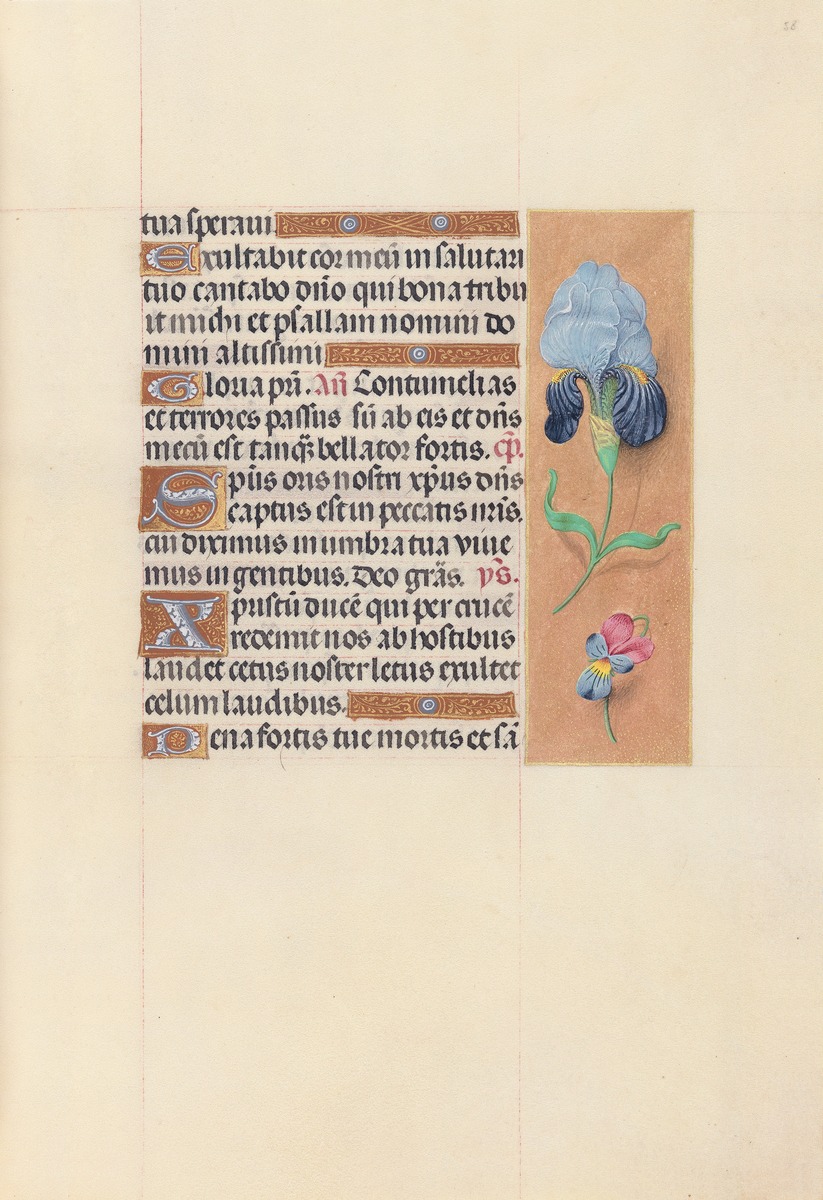 tua speraui
Exultabit cor meū in salutari
tuo cantabo dn̄o qui bona tribu
it michi et psallam nomini do
mini altissimi
Gloria pr̄i. Añ Contumelias
et terrores passus sū ab eis et dn̄s
mecū est tanq̄ bellator fortis. cp̄.
Sp̄us oris nostri xp̄us dn̄s
captus est in peccatis nr̄is.
cui diximus in umbra tua viue
mus in gentibus. Deo grās. ỹs.
Xpristū ducē qui per crucē
redemit nos ab hostibus
laudet cetus noster letus exultet
celum laudibus.
Pena fortis tue mortis et sā